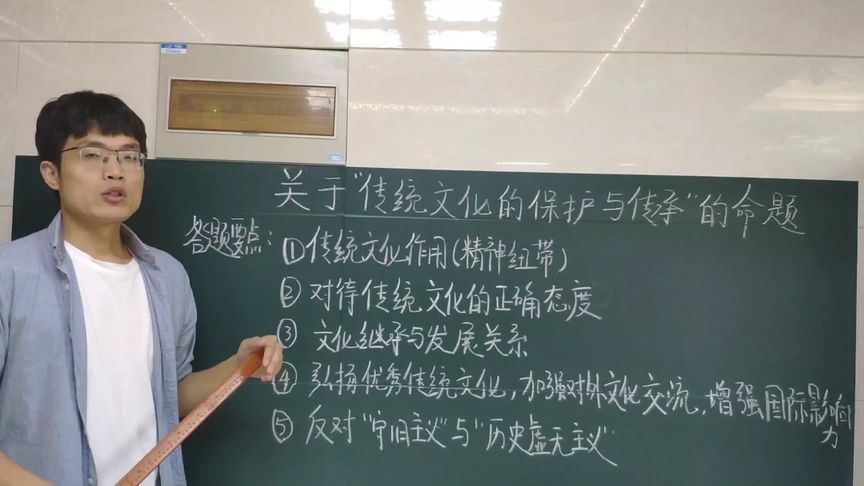 关于"传统文化的保护与传承"的命题
答题要点：①传统文化作用(精神纽带)
②对待传统文化的正确态度
③文化继承与发展关系
④弘扬优秀传统文化，加强对外文化交流，增强国际影响力
⑤反对"守旧主义"与"历史虚无主义"